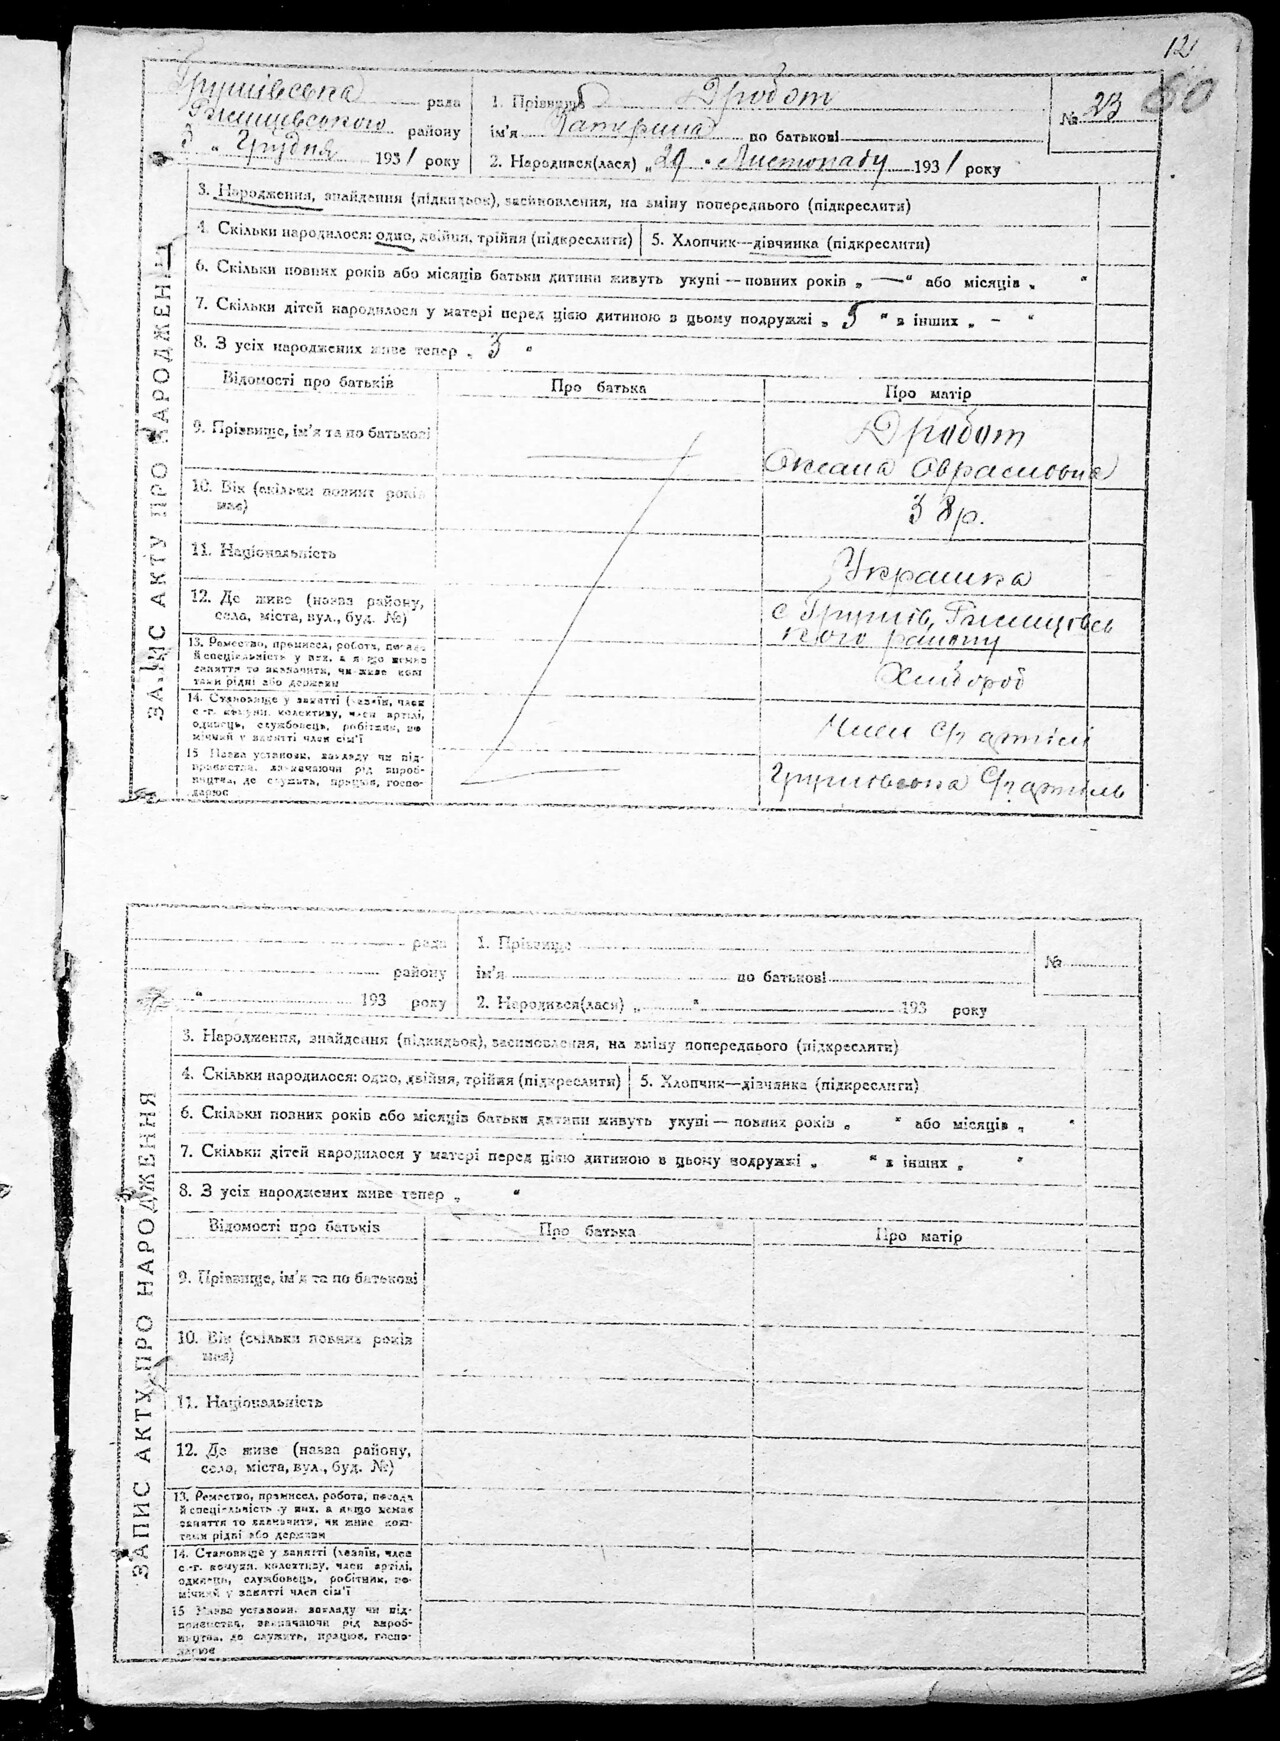 12
60
Грушівська рада
Ржищевського району
3 „ Грудня 1931 року
1. Прізвище Дробот
ім'я Катерина по батькові
2. Народився(лася) „29 " Листопаду 1931 року
№ 23
ЗАПИС АКТУ ПРО НАРОДЖЕННЯ
3. Народження, знайдення (підкидьок), засиновлення, на зміну попереднього (підкреслити)
4. Скільки народилося: одно, двійня, трійня (підкреслити)
5. Хлопчик—дівчинка (підкреслити)
6. Скільки повних років або місяців батьки дитини живуть укупі — повних років „ — " або місяців „ "
7. Скільки дітей народилося у матері перед цією дитиною в цьому подружжі „ 5 " в інших „ - "
8. З усіх народжених живе тепер „ 3 "
Відомості про батьків
Про батька
Про матір
9. Прізвище, ім'я та по батькові
Дробот
Оксана
10. Вік (скільки повних років
має)
38 р.
11. Національність
Украінка
12. Де живе (назва району,
село, міста, вул., буд. №)
с Грушів, Ржищівсь
кого району
13. Ремество, промисел, робота, посада
й спеціяльність у них, а якщо немає
заняття то зазначити, чи живе кош-
тами рідні або держави
Хлібороб
14. Становище у занятті (хазяїн, член
с.-г. комуни, колективу, член артілі,
одинець, службовець, робітник, по-
мічний у занятті член сім'ї
Член с/г артілі
15 Назва установи, закладу чи під-
приємства, зазначаючи рід вироб-
ництва, де служить, працює, госпо-
дарює
Грушівська с/г артиль
рада
району
" 193 року
1. Прізвище
ім'я по батькові
2. Народився(лася) „ " 193 року
№
ЗАПИС АКТУ ПРО НАРОДЖЕННЯ
3. Народження, знайдення (підкидьок), засиновлення, на зміну попереднього (підкреслити)
4. Скільки народилося: одно, двійня, трійня (підкреслити)
5. Хлопчик—дівчинка (підкреслити)
6. Скільки повних років або місяців батьки дитини живуть укупі — повних років „ " або місяців „ "
7. Скільки дітей народилося у матері перед цією дитиною в цьому подружжі „ " в інших „ "
8. З усіх народжених живе тепер „ "
Відомості про батьків
Про батька
Про матір
9. Прізвище, ім'я та по батькові
10. Вік (скільки повних років
має)
11. Національність
12. Де живе (назва району,
село, міста, вул., буд. №)
13. Ремество, промисел, робота, посада
й спеціяльність у них, а якщо немає
заняття то зазначити, чи живе кош-
тами рідні або держави
14. Становище у занятті (хазяїн, член
с.-г. комуни, колективу, член артілі,
одинець, службовець, робітник, по-
мічний у занятті член сім'ї
15 Назва установи, закладу чи під-
приємства, зазначаючи рід вироб-
ництва, де служить, працює, госпо-
дарює